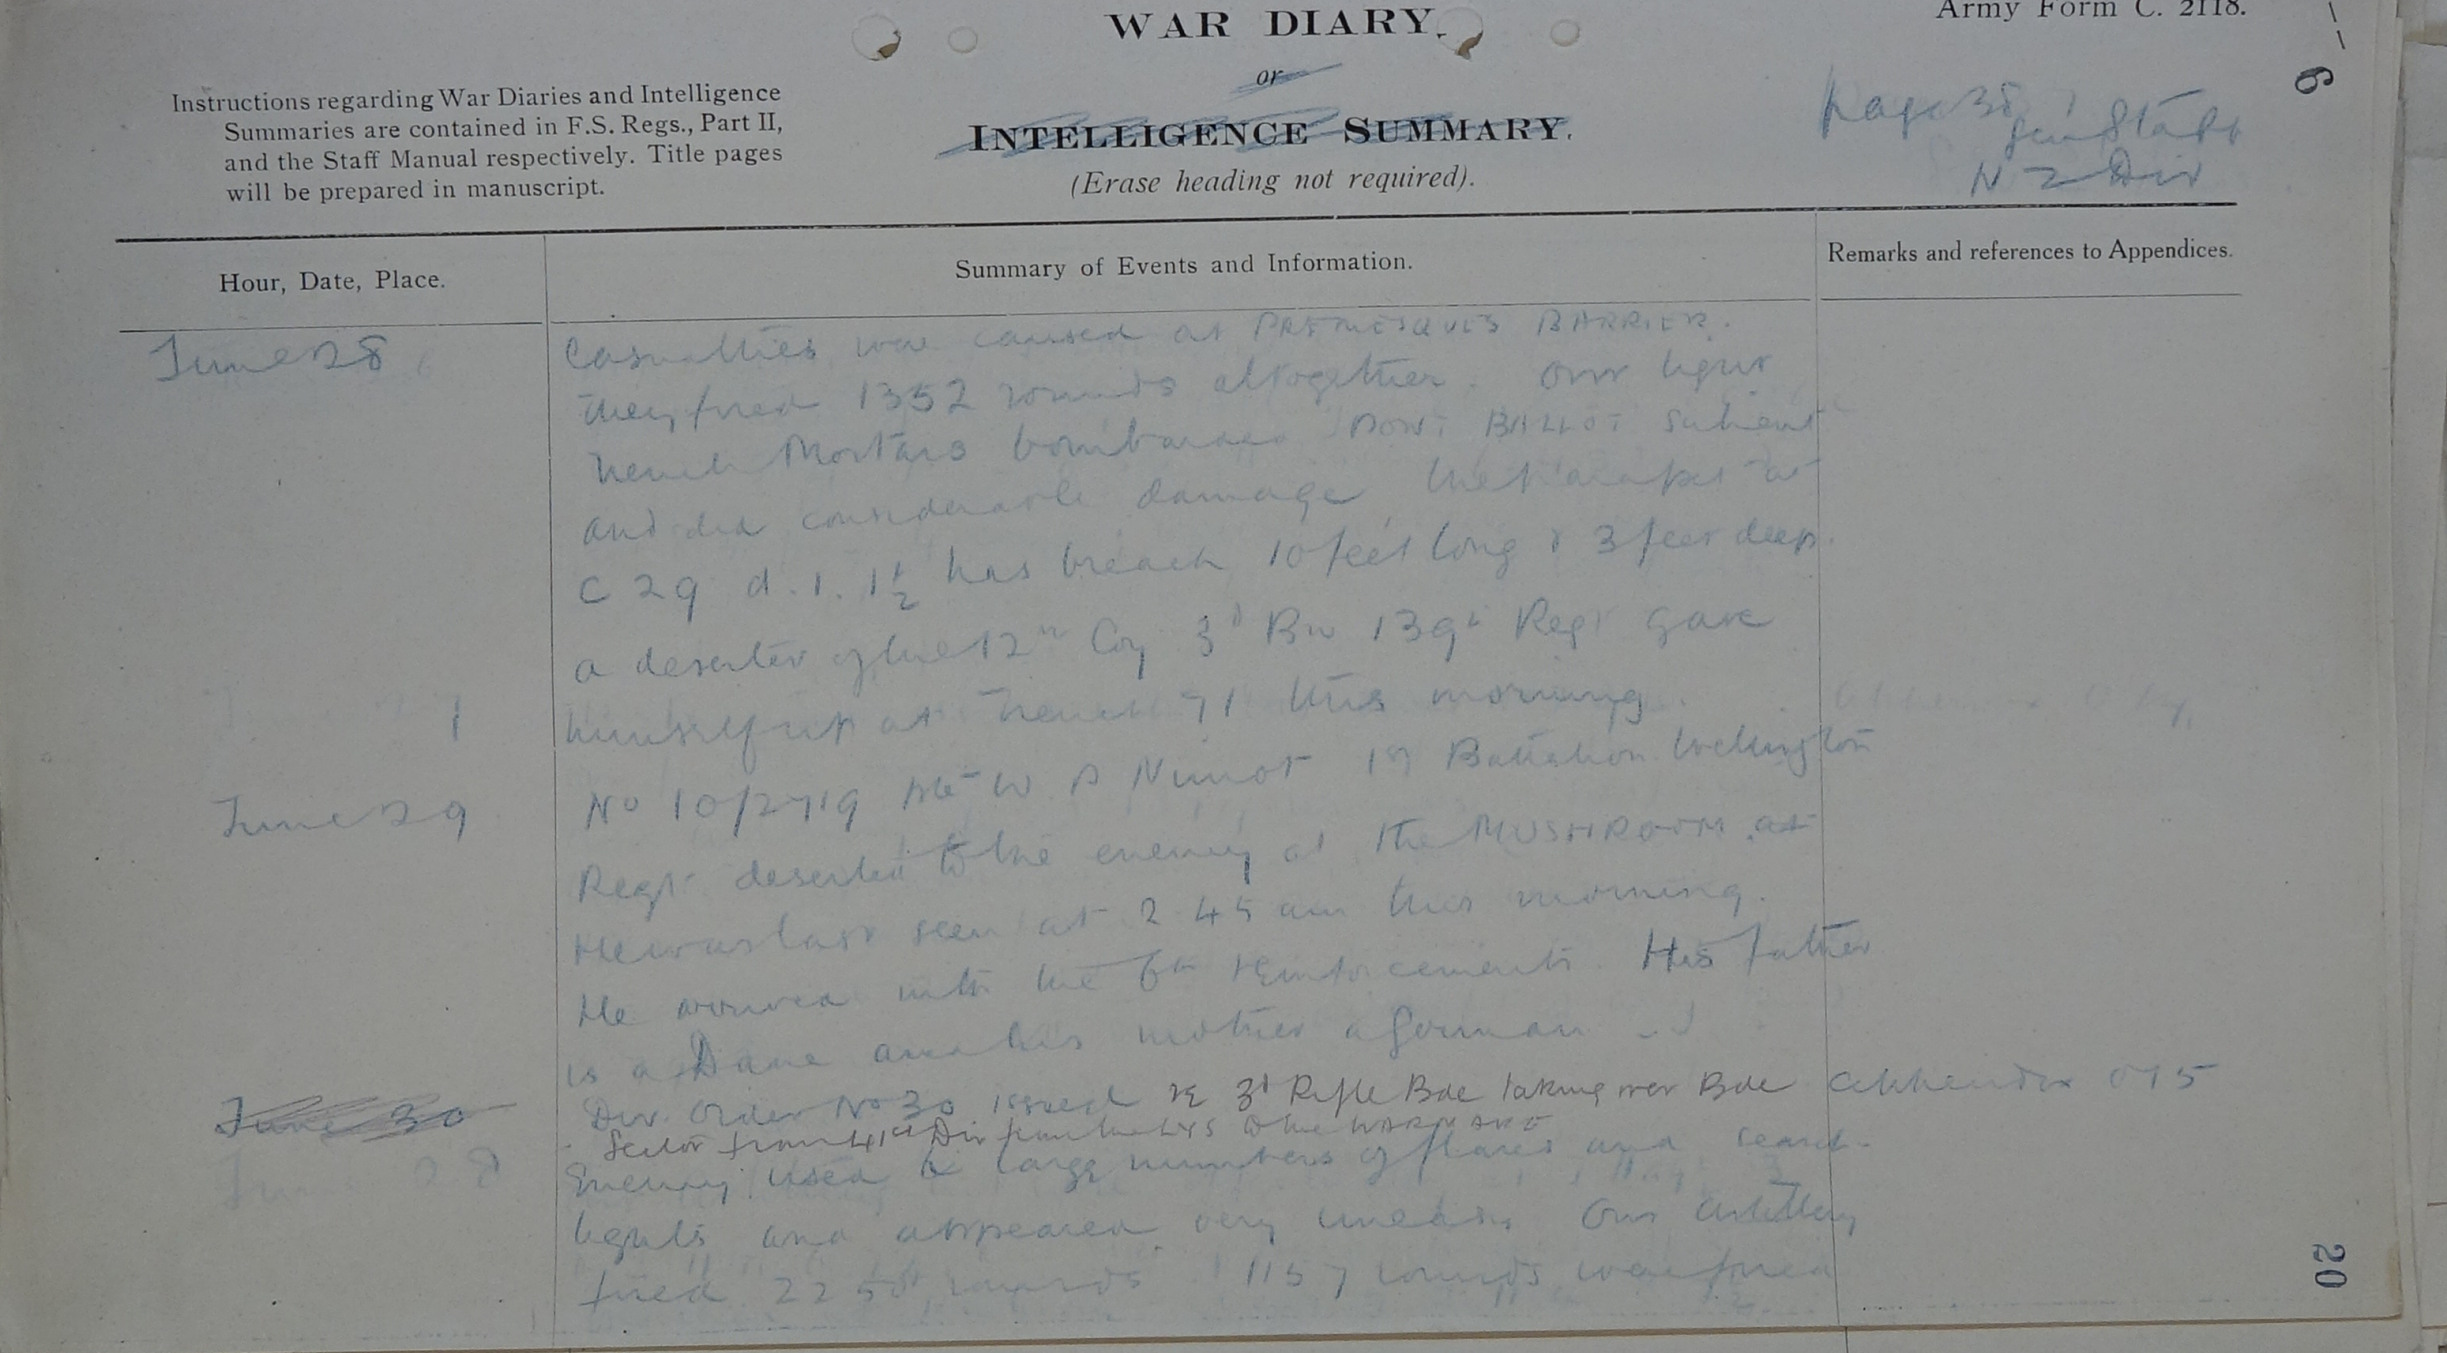 WAR DIARY.
Army Form C. 2118.
or
INTELLIGENCE SUMMARY.
(Erase heading not required).
Instructions regarding War Diaries and Intelligence
Summaries are contained in F.S. Regs., Part II,
and the Staff Manual respectively. Title pages
will be prepared in manuscript.
Page 38
Gen Staff
N Z Div
6
Hour, Date, Place.
Summary of Events and Information.
Remarks and references to Appendices.
June 28
Casualties were caused at PREMESQUES BARRIER.
They fired 1352 rounds altogether. Our light
Trench Mortars bombarded PONT BALLOT salient
and did considerable damage, the parapet at
C 29 d. 1. 1½ has breach 10 feet long & 3 feet deep.
a deserter of the 12th Coy 3d Bn 139th Regt gave
himself up at Trench 71 this morning.
June 29
No 10/2719 Pte W P Nimot 1st Battalion Wellington
Regt deserted to the enemy at the MUSHROOM at
He was last seen at 2 45 am this morning.
He arrived with the 6th reinforcements. His father
is a Dane and his mother a German
June 30
Div Order No 30 issued re 3d Rifle Bde taking over Bde
Appendix 075
Sector from 41st Div from the LYS to the WARNAVE
June 28
Enemy used large numbers of flares and search-
lights and appeared very uneasy Our artillery
fired 2250 rounds 1157 rounds were fired
20